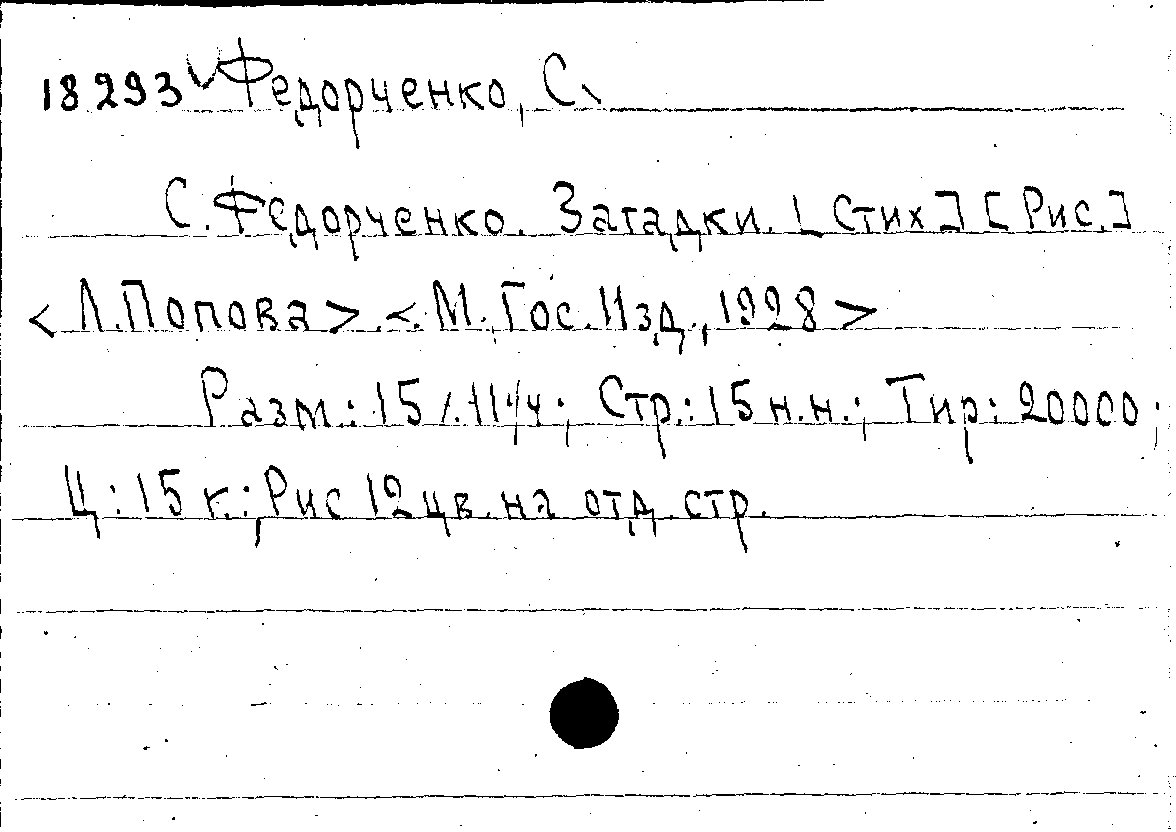 18293 Федорченко, С.
С. Федорченко. Загадки. [Стих] [Рис.]
<Л. Попова> <М. Гос. Изд., 1928>
Разм.: 15 ; Стр.: 15 н.н.; Тир: 20000;
Ц: 15 к.; Рис 12 цв. на отд. стр.